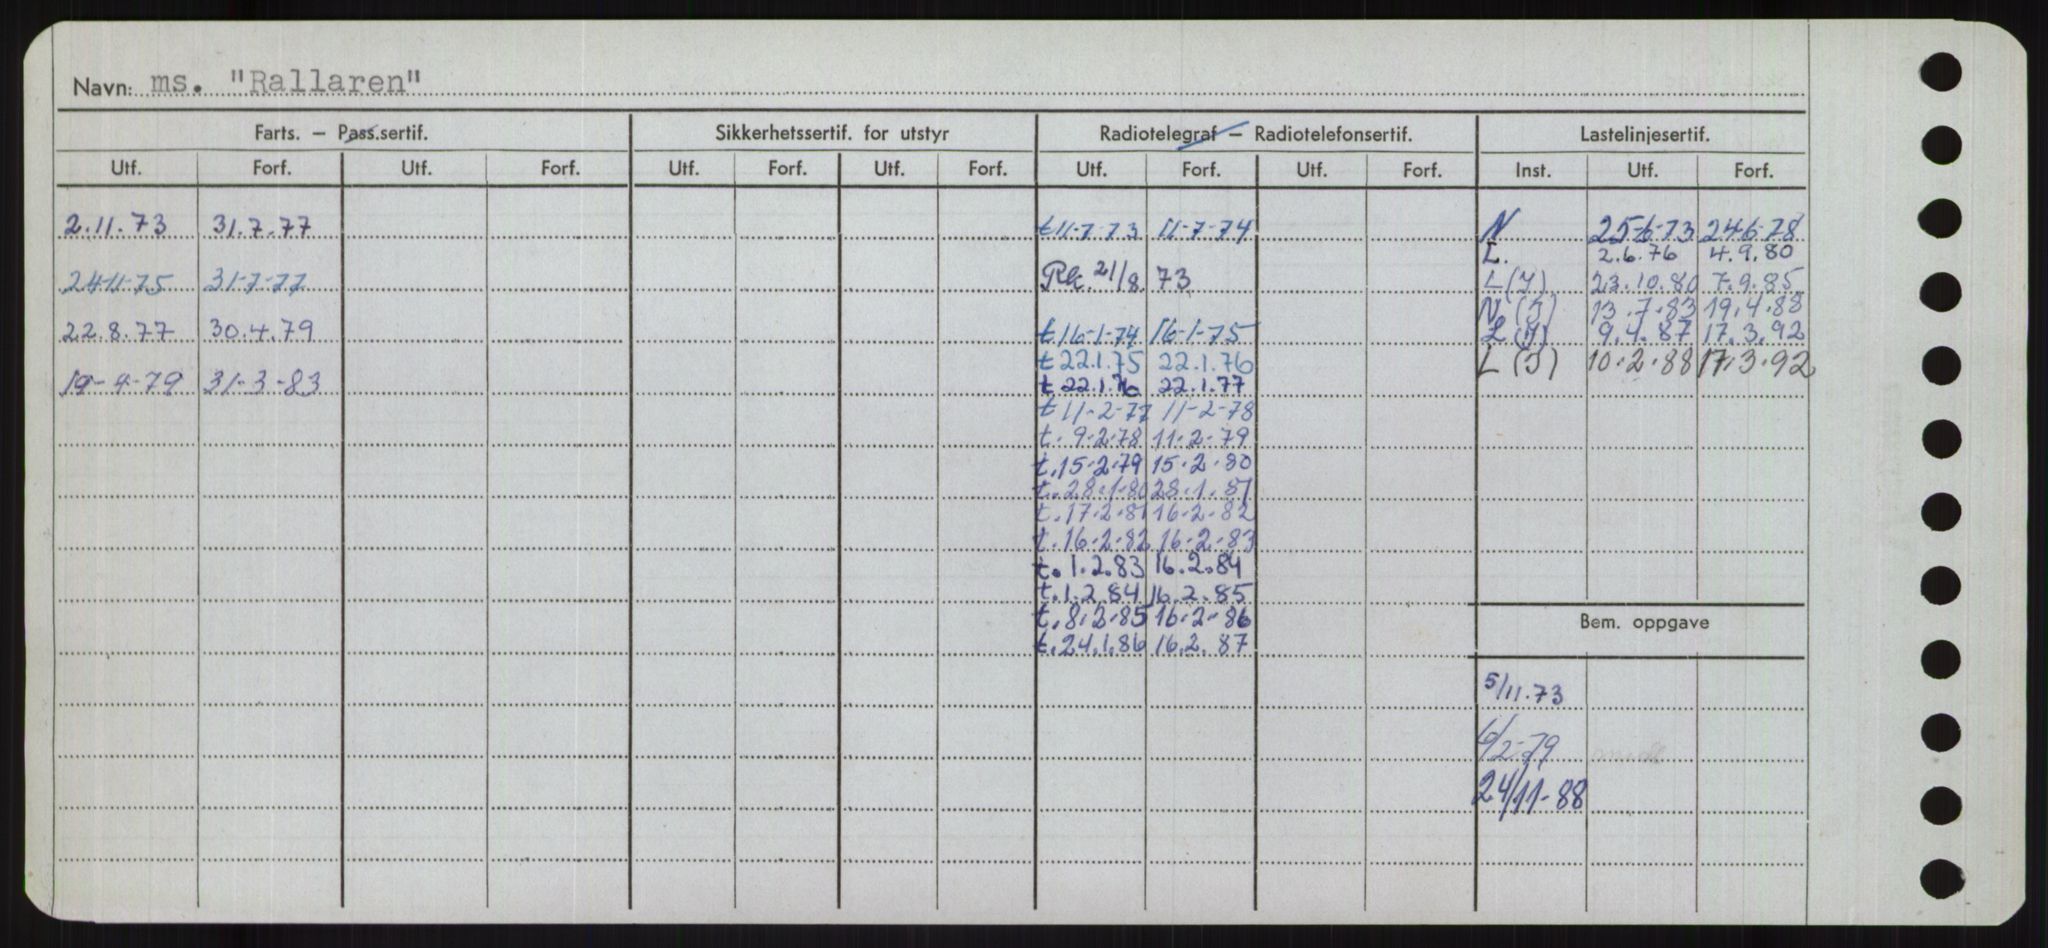 Navn: ms. "Rallaren"
Farts. – Pass.sertif. Sikkerhetssertif. for utstyr Radiotelegraf – Radiotelefonsertif. Lastelinjesertif.
Utf. Forf. Utf. Forf. Utf. Forf. Utf. Forf. Utf. Forf. Utf. Forf. Inst. Utf. Forf.
2.11.73 31.7.77 t11-7-73 11-7-74 N 25-6-73 24.6.78
L. 2.6.76 4.9.80
24-11-75 31-7-77 Rk. 21/8 73 L(I) 23.10.80 7.9.85
N (I) 13.7.83 19.4.88
22.8.77 30.4.79 t16-1-74 16-1-75 L(I) 9.4.87 17.3.92
t22.1.75 22.1.76 L(I) 10.2.88 17.3.92
19-4-79 31-3-83 t 22.1.76 22.1.77
t 11-2-77 11-2-78
t. 9.2.78 11.2.79
t.15.2.79 15.2.80
t.28.1.80 28.1.81
t.17.2.81 16.2.82
t.16.2.82 16.2.83
t. 1.2.83 16.2.84
t.1.2.84 16.2.85
t.8.2.85 16.2.86
t.24.1.86 16.2.87
Bem. oppgave
5/11.73
6/2-79
24/11-88